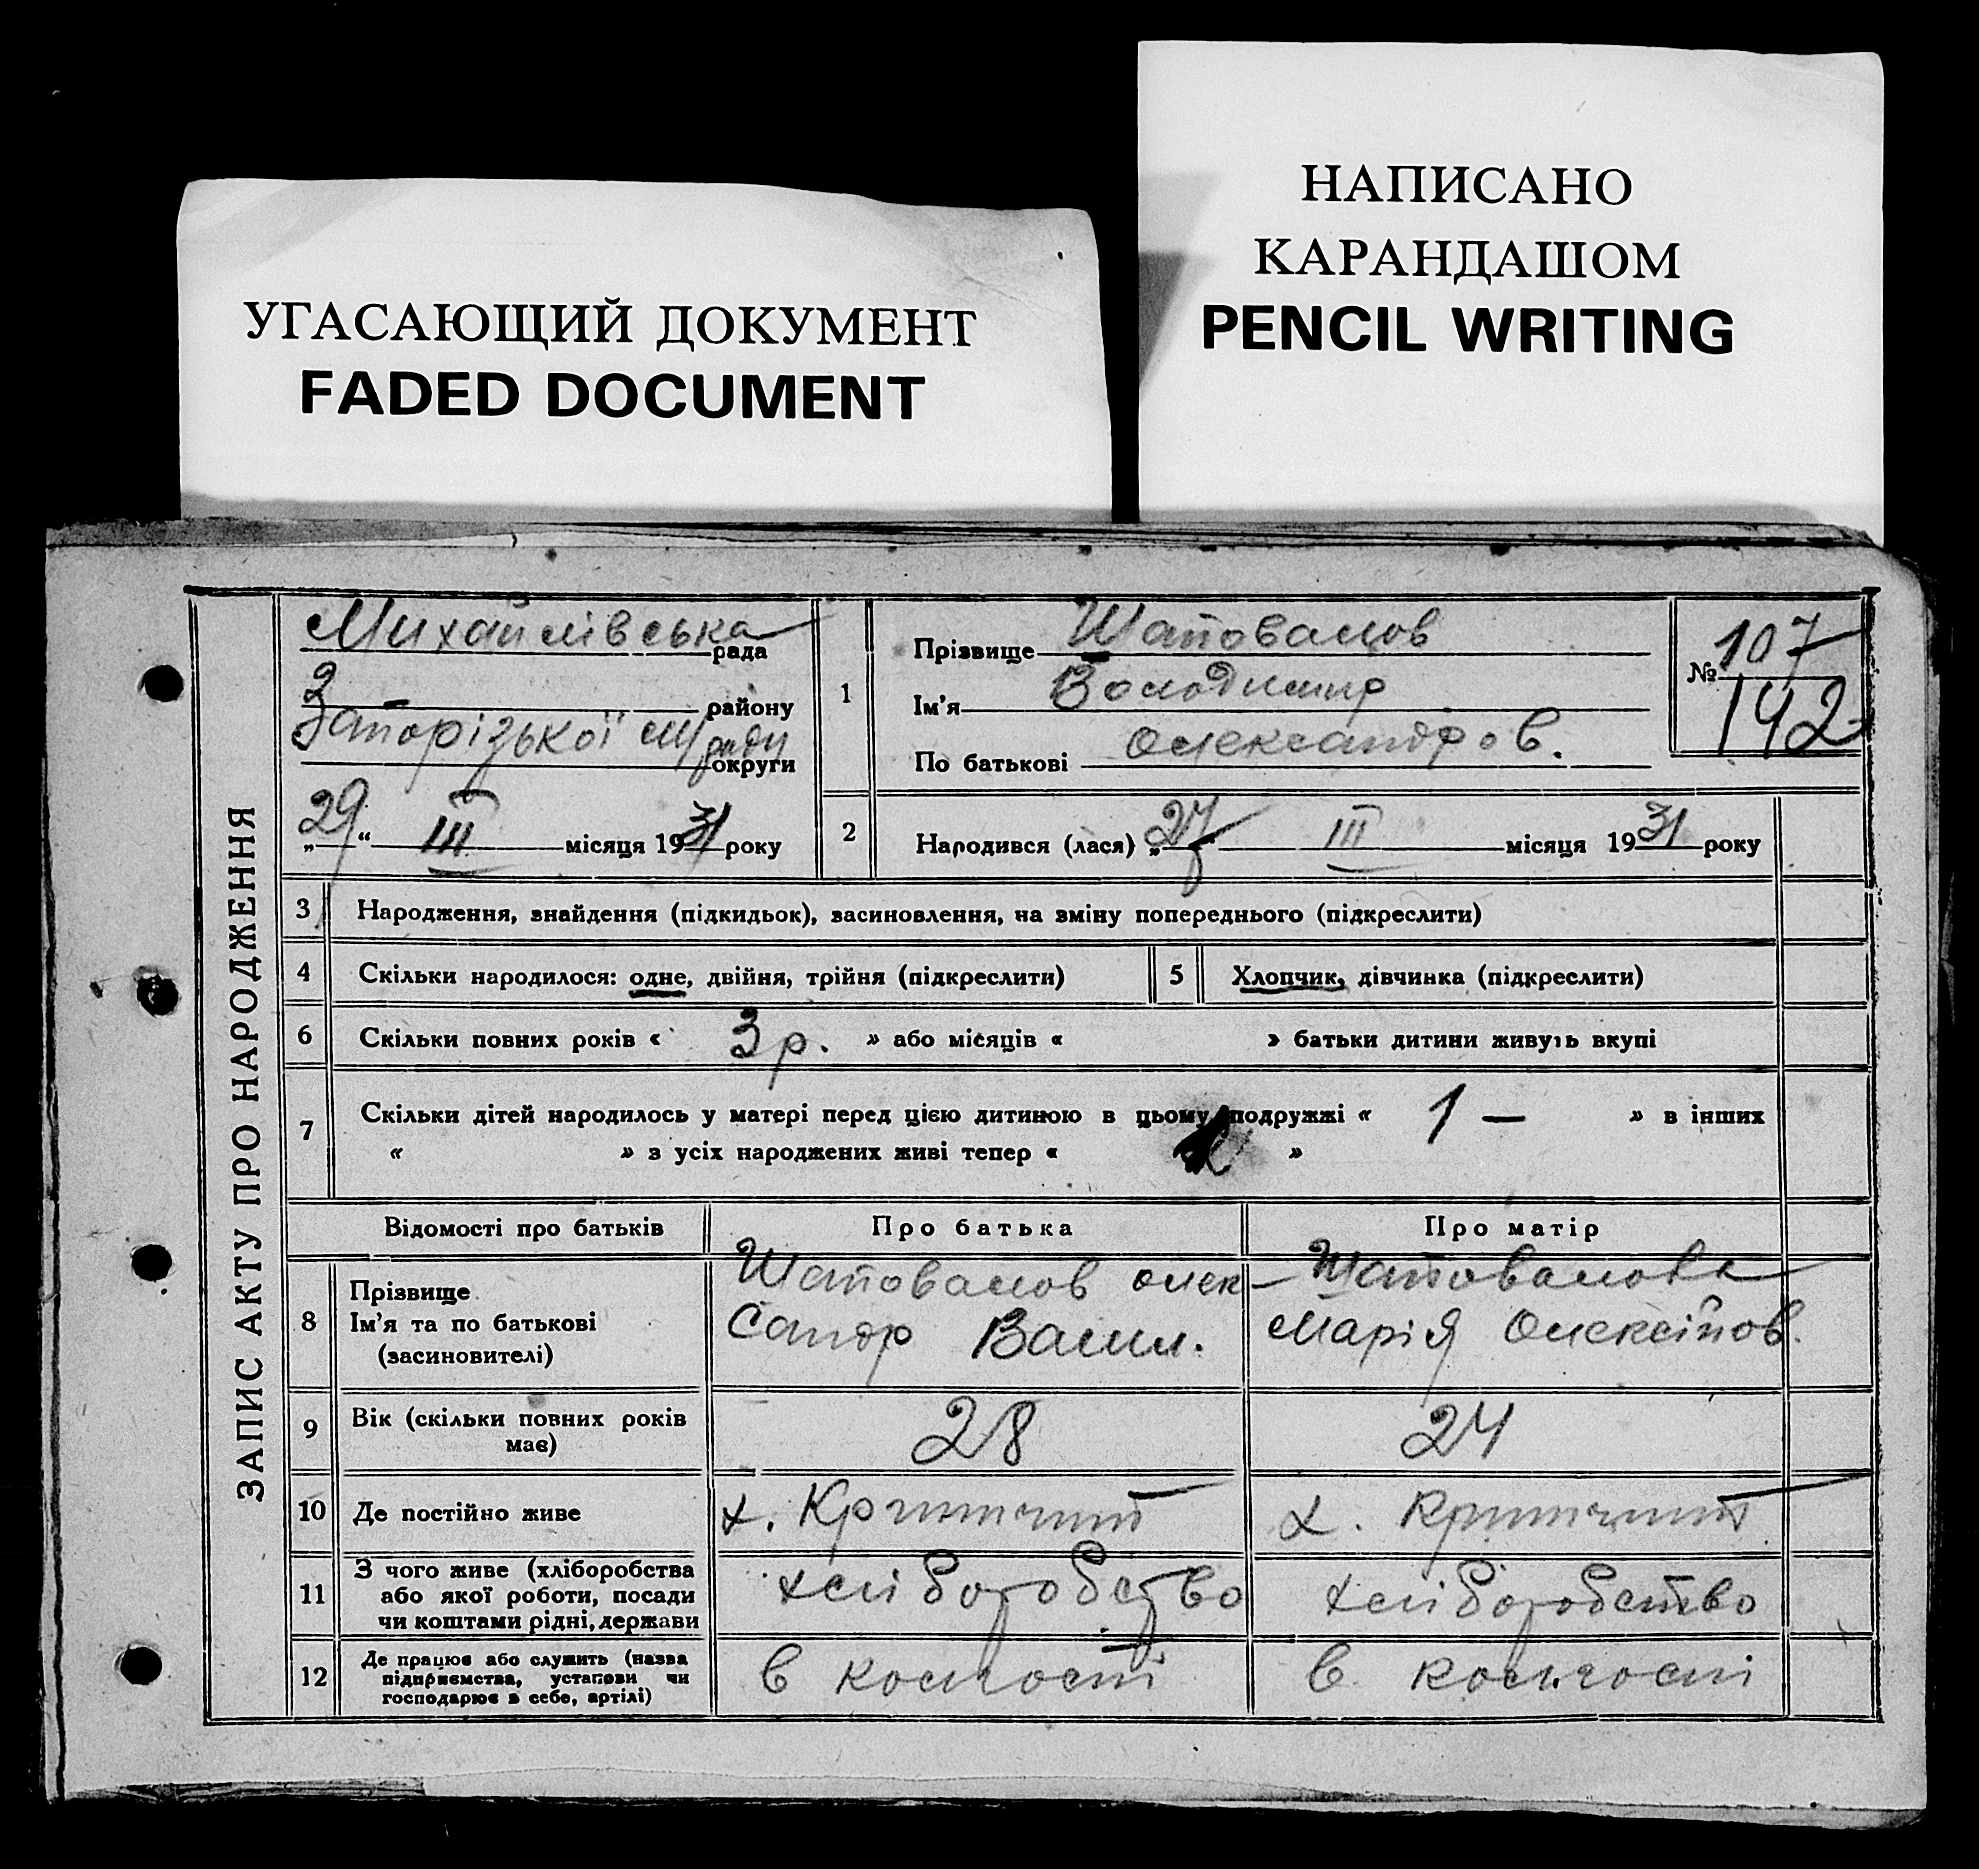 НАПИСАНО
КАРАНДАШОМ
PENCIL WRITING
УГАСАЮЩИЙ ДОКУМЕНТ
FADED DOCUMENT
ЗАПИС АКТУ ПРО НАРОДЖЕННЯ
Михайлівська рада
З району
Запорізької округи
„29“ III місяця 1931 року
1
Прізвище Шаповалов
Ім'я Володимир
По батькові Олександров.
№ 107
142
2
Народився (лася) „27 III місяця 1931 року
3 Народження, знайдення (підкидьок), засиновлення, на зміну попереднього (підкреслити)
4 Скільки народилося: одне, двійня, трійня (підкреслити) 5 Хлопчик, дівчинка (підкреслити)
6 Скільки повних років « 3 р. » або місяців « » батьки дитини живуть вкупі
7 Скільки дітей народилось у матері перед цією дитиною в цьому подружжі « 1 — » в інших
« » з усіх народжених живі тепер « »
Відомості про батьків Про батька Про матір
8
Прізвище
Ім'я та по батькові
(засиновителі)
Шаповалов Олек-
сандр Васил.
Шаповалова
Марія Олексіїов.
9
Вік (скільки повних років
має)
28
24
10 Де постійно живе х. х.
11
З чого живе (хліборобства
або якої роботи, посади
чи коштами рідні, держави
хліборобство
хліборобство
12
Де працює або служить (назва
підприємства, установи чи
господарює в себе, артілі)
в колгоспі
в колгоспі